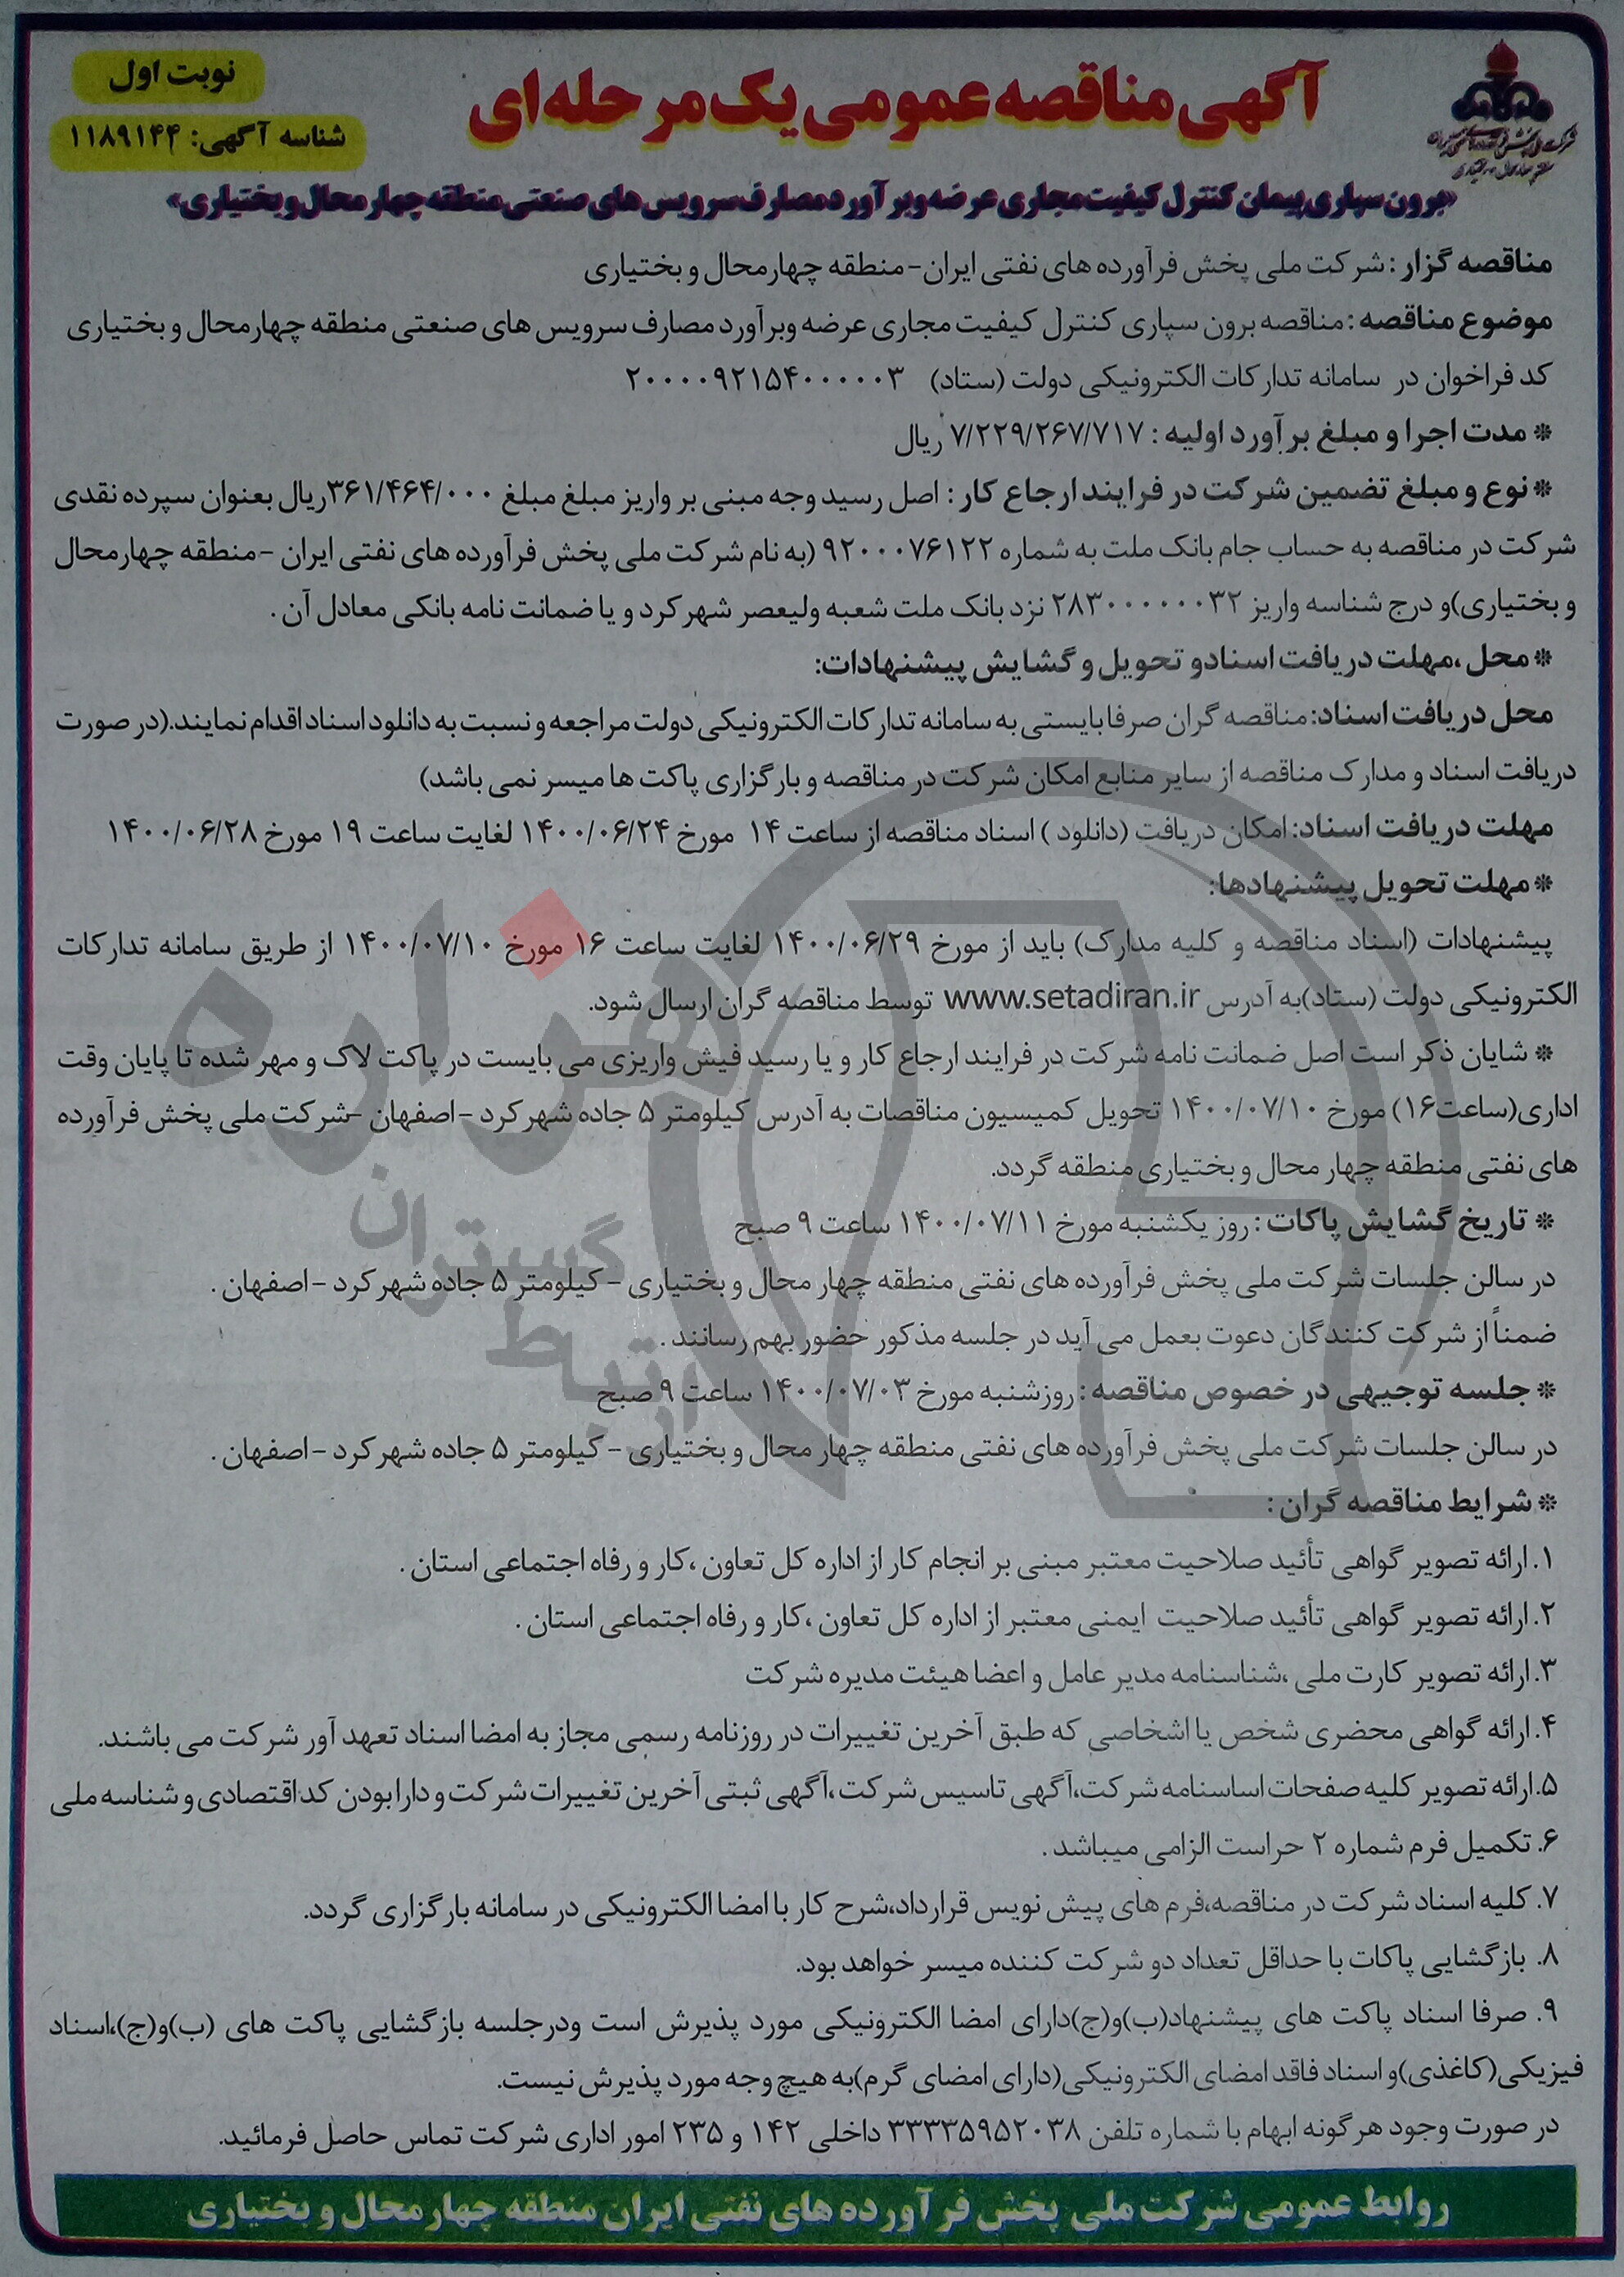 نوبت اول
شناسه آگهی: ۱۱۸۹۱۴۴
آگهی مناقصه عمومی یک مرحله ای
«برون سپاری پیمان کنترل کیفیت مجاری عرضه و برآورد مصارف سرویس های صنعتی منطقه چهارمحال و بختیاری»
مناقصه گزار : شرکت ملی پخش فرآورده های نفتی ایران- منطقه چهارمحال و بختیاری
موضوع مناقصه : مناقصه برون سپاری کنترل کیفیت مجاری عرضه وبرآورد مصارف سرویس های صنعتی منطقه چهارمحال و بختیاری
کد فراخوان در سامانه تدارکات الکترونیکی دولت (ستاد) ۲۰۰۰۰۹۲۱۵۴۰۰۰۰۰۳
* مدت اجرا و مبلغ برآورد اولیه : ۷/۲۲۹/۲۶۷/۷۱۷ ریال
* نوع و مبلغ تضمین شرکت در فرایند ارجاع کار : اصل رسید وجه مبنی بر واریز مبلغ مبلغ ۳۶۱/۴۶۴/۰۰۰ریال بعنوان سپرده نقدی
شرکت در مناقصه به حساب جام بانک ملت به شماره ۹۲۰۰۰۷۶۱۲۲ (به نام شرکت ملی پخش فرآورده های نفتی ایران -منطقه چهارمحال
و بختیاری)و درج شناسه واریز ۲۸۳۰۰۰۰۰۰۰۳۲ نزد بانک ملت شعبه ولیعصر شهرکرد و یا ضمانت نامه بانکی معادل آن .
* محل ،مهلت دریافت اسنادو تحویل و گشایش پیشنهادات:
محل دریافت اسناد: مناقصه گران صرفا بایستی به سامانه تدارکات الکترونیکی دولت مراجعه و نسبت به دانلود اسناد اقدام نمایند.(در صورت
دریافت اسناد و مدارک مناقصه از سایر منابع امکان شرکت در مناقصه و بارگزاری پاکت ها میسر نمی باشد)
مهلت دریافت اسناد: امکان دریافت (دانلود ) اسناد مناقصه از ساعت ۱۴ مورخ ۱۴۰۰/۰۶/۲۴ لغایت ساعت ۱۹ مورخ ۱۴۰۰/۰۶/۲۸
* مهلت تحویل پیشنهادها:
پیشنهادات (اسناد مناقصه و کلیه مدارک) باید از مورخ ۱۴۰۰/۰۶/۲۹ لغایت ساعت ۱۶ مورخ ۱۴۰۰/۰۷/۱۰ از طریق سامانه تدارکات
الکترونیکی دولت (ستاد)به آدرس www.setadiran.ir توسط مناقصه گران ارسال شود.
* شایان ذکر است اصل ضمانت نامه شرکت در فرایند ارجاع کار و یا رسید فیش واریزی می بایست در پاکت لاک و مهر شده تا پایان وقت
اداری(ساعت۱۶) مورخ ۱۴۰۰/۰۷/۱۰ تحویل کمیسیون مناقصات به آدرس کیلومتر ۵ جاده شهرکرد -اصفهان -شرکت ملی پخش فرآورده
های نفتی منطقه چهار محال و بختیاری منطقه گردد.
* تاریخ گشایش پاکات : روز یکشنبه مورخ ۱۴۰۰/۰۷/۱۱ ساعت ۹ صبح
در سالن جلسات شرکت ملی پخش فرآورده های نفتی منطقه چهار محال و بختیاری - کیلومتر ۵ جاده شهرکرد -اصفهان .
ضمناً از شرکت کنندگان دعوت بعمل می آید در جلسه مذکور حضور بهم رسانند .
* جلسه توجیهی در خصوص مناقصه : روزشنبه مورخ ۱۴۰۰/۰۷/۰۳ ساعت ۹ صبح
در سالن جلسات شرکت ملی پخش فرآورده های نفتی منطقه چهار محال و بختیاری - کیلومتر ۵ جاده شهرکرد -اصفهان .
* شرایط مناقصه گران :
۱. ارائه تصویر گواهی تأئید صلاحیت معتبر مبنی بر انجام کار از اداره کل تعاون ،کار و رفاه اجتماعی استان .
۲. ارائه تصویر گواهی تأئید صلاحیت ایمنی معتبر از اداره کل تعاون ،کار و رفاه اجتماعی استان .
۳. ارائه تصویر کارت ملی ،شناسنامه مدیر عامل و اعضا هیئت مدیره شرکت
۴. ارائه گواهی محضری شخص یا اشخاصی که طبق آخرین تغییرات در روزنامه رسمی مجاز به امضا اسناد تعهد آور شرکت می باشند.
۵. ارائه تصویر کلیه صفحات اساسنامه شرکت،آگهی تاسیس شرکت ،آگهی ثبتی آخرین تغییرات شرکت و دارا بودن کد اقتصادی و شناسه ملی
۶. تکمیل فرم شماره ۲ حراست الزامی میباشد .
۷. کلیه اسناد شرکت در مناقصه،فرم های پیش نویس قرارداد،شرح کار با امضا الکترونیکی در سامانه بارگزاری گردد.
۸. بازگشایی پاکات با حداقل تعداد دو شرکت کننده میسر خواهد بود.
۹. صرفا اسناد پاکت های پیشنهاد(ب)و(ج)دارای امضا الکترونیکی مورد پذیرش است ودرجلسه بازگشایی پاکت های (ب)و(ج)،اسناد
فیزیکی(کاغذی)و اسناد فاقد امضای الکترونیکی(دارای امضای گرم)به هیچ وجه مورد پذیرش نیست.
در صورت وجود هرگونه ابهام با شماره تلفن ۳۳۳۳۵۹۵۲۰۳۸ داخلی ۱۴۲ و ۲۳۵ امور اداری شرکت تماس حاصل فرمائید.
روابط عمومی شرکت ملی پخش فرآورده های نفتی ایران منطقه چهارمحال و بختیاری
هزاره
گستران
ارتباط